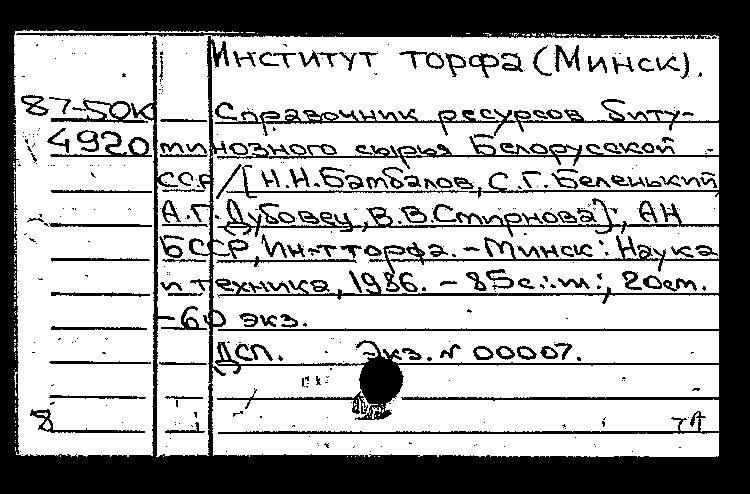 Институт торфа (Минск).
87-50к Справочник ресурсов биту-
4920 минозного сырья Белорусской
ССР / [Н.Н.Бамбалов, С.Г.Беленький,
А.Г.Дубовец, В.В.Смирнова]; АН
БССР, Ин-т торфа. - Минск: Наука
и техника, 1986. - 85с.: ил.; 20см.
-60 экз.
ДСП. Экз. № 00007.
8 тА